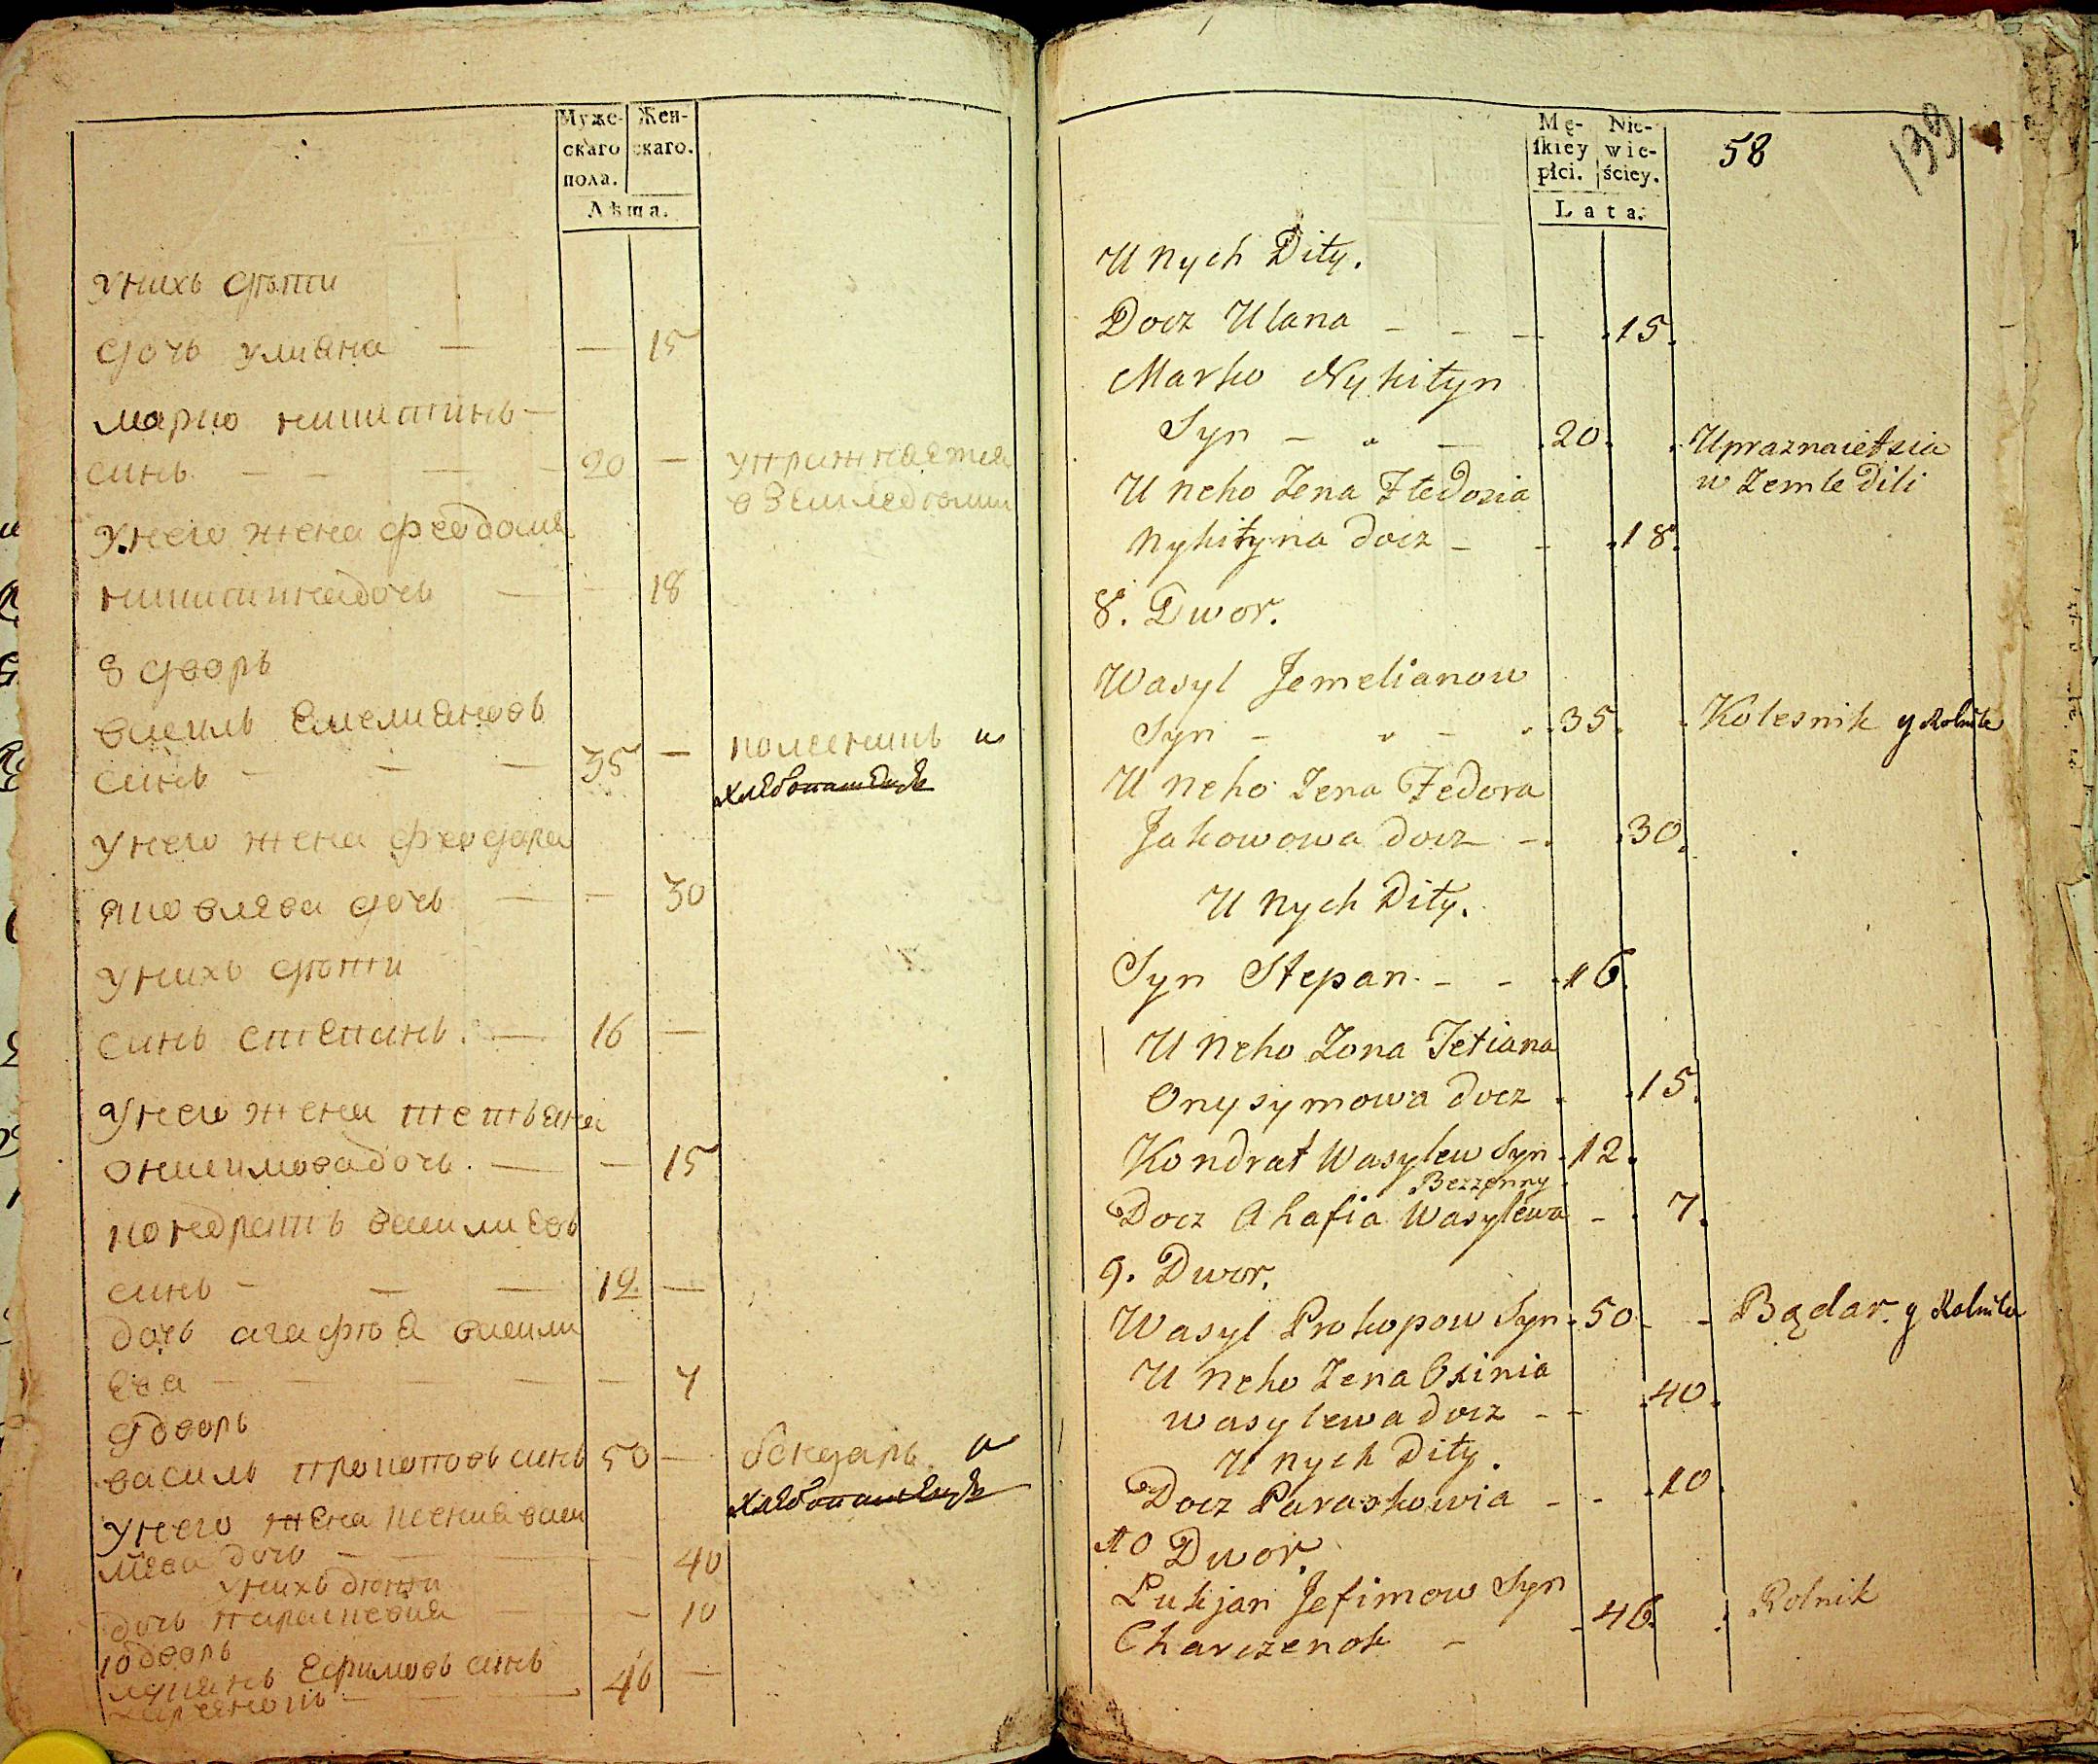 Муже-
скаго
пола.
Жен-
скаго.
Лѣта.
унихъ дѣти
дочь улияна — — 15
марко никитинъ —
синъ — — — 20 — упражняется
в земледѣлии
унего жена феодосия
никитина дочь — — 18
8 дворъ
василь емелияновъ
синъ — — — 35 — колесникъ и
хлебопашецъ
унего жена феодора
яковлева дочь — — 30
унихъ дѣти
синъ степанъ. — 16 —
унего жена тетьяна
онисимова дочь. — — 15
кондратъ василиевъ
синъ — — 12 —
дочь агафья васили
ева — — — — — 7
9 дворъ
василь прокоповъ синъ 50 — бондарь и
хлебопашецъ
унего жена ксения васи
лиева дочь — — 40
унихъ дѣти
дочь параскевия — — 10
10 дворъ
лукянъ ефимовъ синъ
харченокъ — — 46 —
Mę-
ſkiey
płci.
Nie-
wie-
ściey.
Lata.
58
139
U nych Dity.
Docz Ulana - - - 15.
Marko Nykityn
Syn - - 20. Upraznaietsia
w Zemle Dili
U neho Zena Ftedosia
Nykityna docz - - 18.
8. Dwor.
Wasyl Jemelianow
Syn - - 35. Kolesnik y Rolnik
U neho Zena Fedora
Jakowowa docz - 30.
U nych Dity.
Syn Stepan. - - 16.
U neho Zona Tetiana
Onysymowa docz 15.
Kondrat Wasylew Syn 12.
Bezzenny
Docz Ahafia Wasylewa - 7.
9. Dwor.
Wasyl Prokopow Syn 50 - - Bądar. y Rolnik
U neho Zena Oxinia
wasylewa docz - - 40.
U nych Dity.
Docz Paraskowia - - 10.
10 Dwor.
Lukjan Jefimow Syn
Charczenok - 46. Rolnik